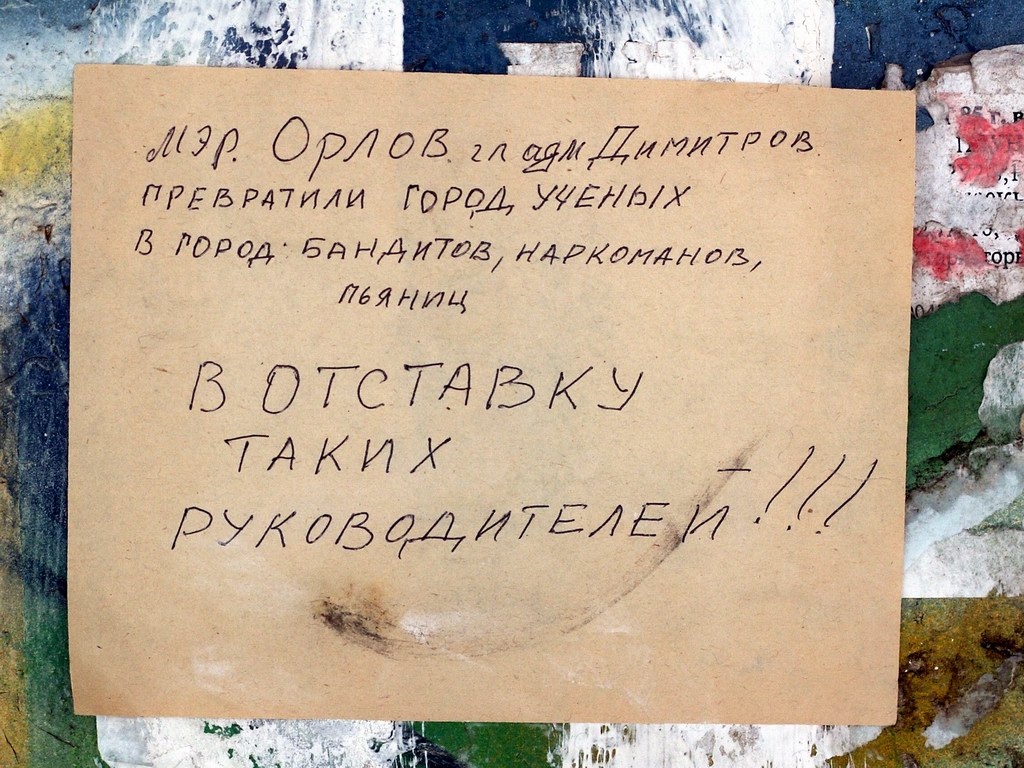 МЭР. ОРЛОВ. гл адм ДИМИТРОВ
ПРЕВРАТИЛИ ГОРОД УЧЕНЫХ
В ГОРОД БАНДИТОВ, НАРКОМАНОВ,
ПЬЯНИЦ
В ОТСТАВКУ
ТАКИХ
РУКОВОДИТЕЛЕЙ!!!